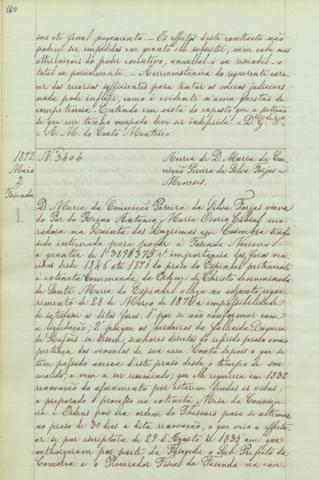 140
seus até final pagamento. — Os effeitos d'este contracto não
podem ser impedidos em quanto elle subsistir, nem cabe nas
attribuições do poder executivo, annullal-o ou rescindil-o
total ou parcialmente. — A circumstancia do requerente care-
cer dos recursos sufficientes para tentar os meios judiciaes
nada pode influir, como é evidente n'uma questão de
competencia. Entendo em vista do exposto que a petição
de que me tenho occupado deve ser indeferida. = D.s G.e V.a
= A. M. do Couto Monteiro
1872 N.º 3404
Maio
2
Fazenda
Ácerca de D. Maria da Con-
ceição Pereira da Silva Forjaz e
Menezes.
D. Maria da Conceição Pereira da Silva Forjaz viuva
do Par do Reino Antonio Maria Osorio Cabral, mo-
radora na Quinta das Lagrimas em Coimbra tendo
sido intimada para pagar á Fazenda Nacional
a quantia de importancia dos foros ven-
cidos desde 1846 até 1871 do prazo do Espinhel pertencente
á extincta Commenda da Ordem de Christo denominada
de Santa Maria do Espinhel allega no adjunto reque-
rimento de 28 de Março de 1871 a impossibilidade
de satisfazer os ditos foros: 1.º por se não conformar com
a liquidação; 2.º porque os herdeiros da fallecida Duqueza
de Lafões se dizem senhores directos do referido prazo como
pertença dos vinculos de sua casa. Conta depois o que se
tem passado acerca d'este prazo desde o tempo de seu
marido, e vem a ser resumindo: que elle requereu em 1832
renovação do aforamento por estarem findas as vidas,
e preparado o processo na extincta Mesa da Conscien-
cia e Ordens pois deu ordem do Thesouro para se ultimar
no prazo de 30 dias a dita renovação, o que veio a effeitu-
ar-se por escriptura de 29 d'Agosto de 1835 em que
outhorgaram por parte da Fazenda o Sub-Prefeito da
Comarca e o Procurador Fiscal da Fazenda na con-